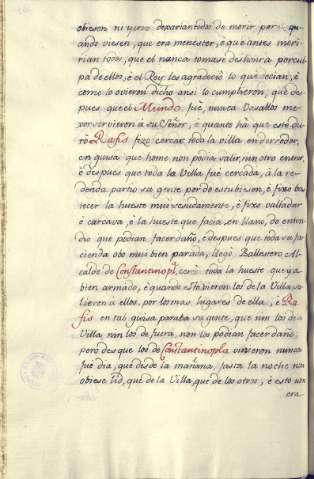 obiesen ni yerro de parianteidad de morir, pero qu
ando viesen, que era menester, è que antes mori
rian todos, que el nunca tomase deshonra por cul
pa de ellos, è el Rey les agradeciò lo que decian, è
como lo ovieron dicho ansi lo cumplieron, que des
pues que el Mundo fuè, nunca Vasallos me
jor sirvieron à su Señor, è quanto hà que esto du
rò Rasis fizo cercar toda la villa en derredor,
en guisa que home non podia salir, nin otro entrar,
è despues que toda la Villa fuè cercada, à la re
donda partio su gente por do estubiesen, è fizo bas
tecer la hueste mui sesudamente, è fizo valladar
è carcava, è la hueste que facia, en llano, do enten
dio que podian facer daño, è despues que toda su fa
cienda obo mui bien parada, llegò Ballestero Al
calde de Constantinopl. con toda la hueste que ya
bien armado, è quando esto vieron los de la Villa sa
lieron à ellos, por los mas lugares de ella, è Ra
sis en tal guisa paraba su gente, que nin los de la
Villa, nin los de fuera, non los podian facer daño,
pero des que los de Constantinopla vinieron nunca
fuè dia, que desde la mañana, fasta la noche non
obiese lid, què de la Villa, què de los otros, è esto non
era